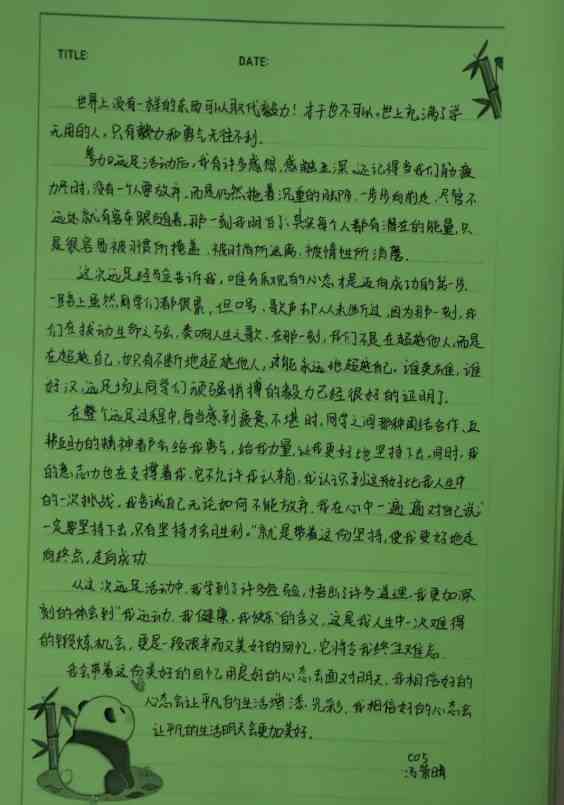 TITLE:
DATE:
世界上没有一样的东西可以取代毅力!才干也不可以,世上充满了学
无用的人,只有毅力和勇气无往不利。
参加远足活动后,我有许多感想,感触至深。还记得当我们筋疲
力尽时,没有一个人要放弃,而是仍然拖着沉重的脚步一步步向前走,尽管不
远处就有客车跟随着,那一刻我明白了,其实每个人都有潜在的能量,只
是很容易被习惯所掩盖,被时间所迷离,被惰性所消磨。
这次远足经历告诉我,唯有乐观的心态才是迈向成功的第一步。
一路上虽然同学们都很累,但口号、歌声却从未断过,因为那一刻,我
们在拨动生命之弦,奏响人生之歌。在那一刻,我们不是在超越他人,而是
在超越自己,如只有不断地超越他人,才能永远地超越自己。谁英雄,谁
好汉,远足场上同学们顽强拼搏的毅力已经很好的证明了。
在整个远足过程中,每当感到疲惫不堪时,同学之间那种团结合作、互
帮互助的精神都会给我勇气,给我力量,让我更好地坚持下去。同时,我
的意志力也在支撑着我,它不允许我认输,我认识到这场好比我人生中
的一次挑战,我告诫自己无论如何不能放弃。我在心中一遍遍对自己说:“
一定要坚持下去,只有坚持才会胜利。”就是带着这份坚持,使我更好地走
向终点,走向成功
从这次远足活动中,我学到了许多经验,悟出了许多道理,我更加深
刻的体会到“我运动,我健康,我快乐”的含义,这是我人生中一次难得
的锻炼机会,更是一段艰辛而又美好的回忆,它将令我终生难忘。
我会带着这份美好的回忆用良好的心态去面对明天,我相信好的
心态会让平凡的生活增添光彩,我相信好的心态会
让平凡的生活明天会更加美好。
C05